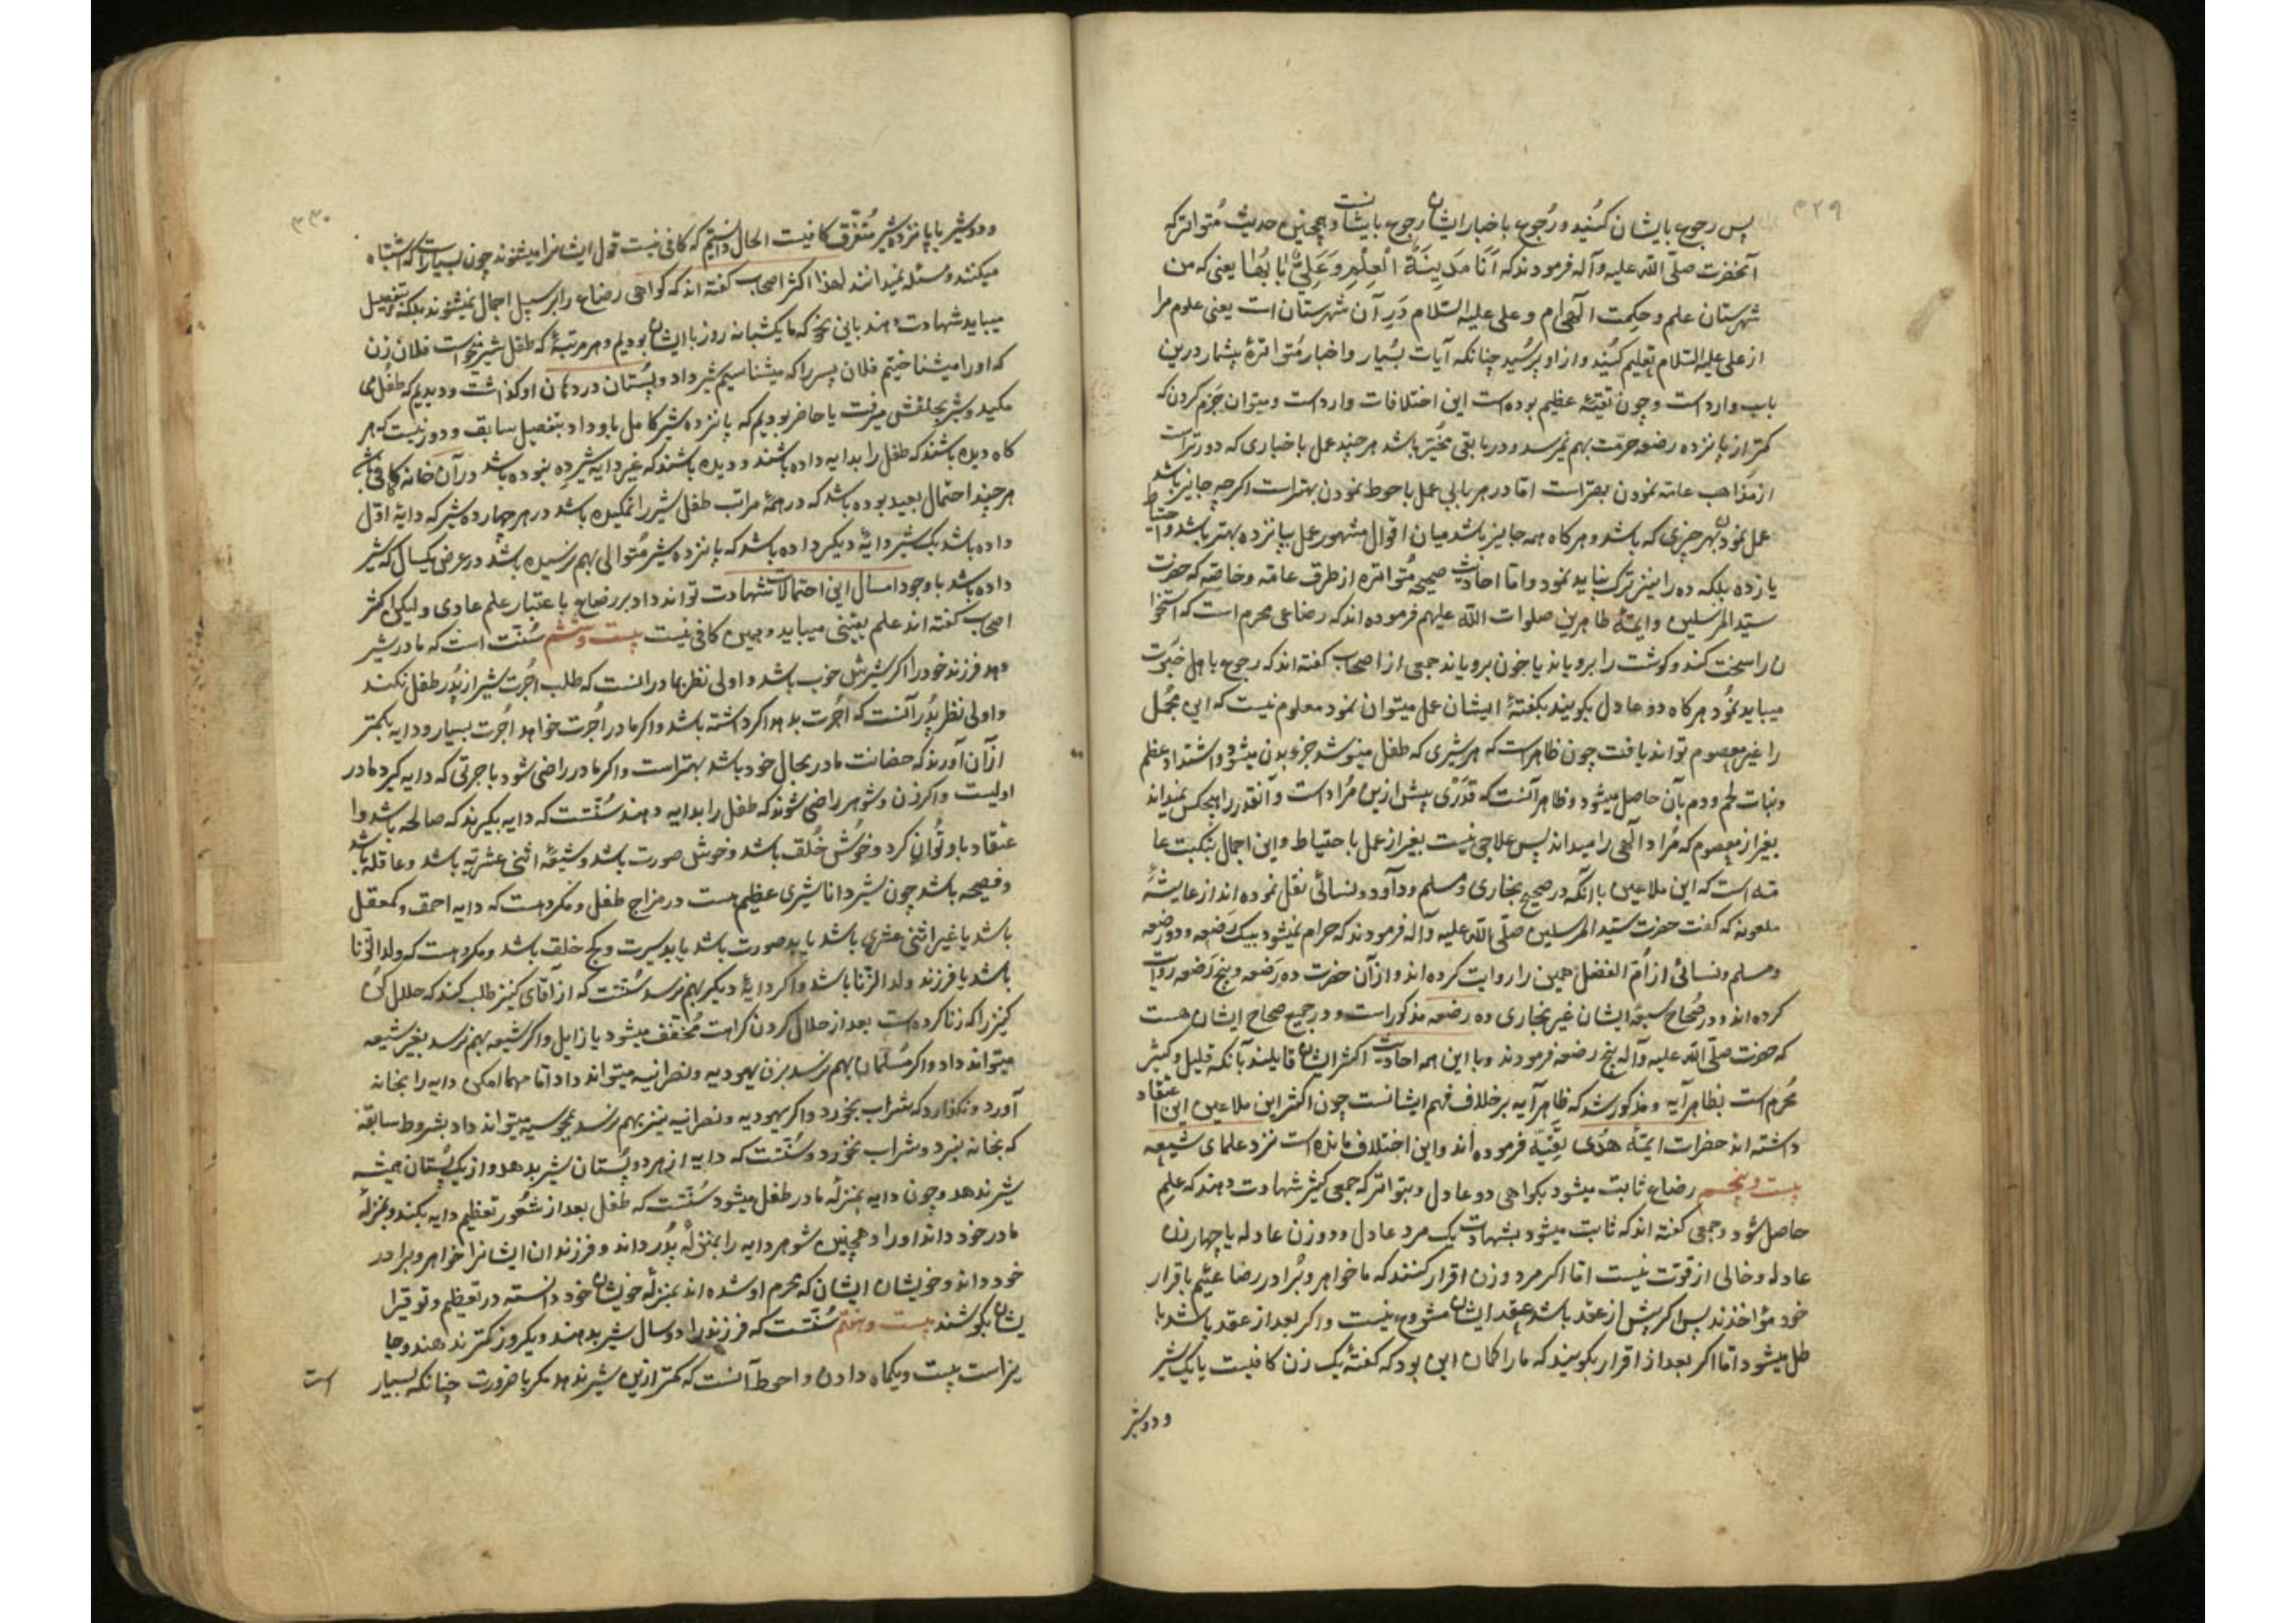 ۳۲۹
پس رجوع بایشان کنید و رجوع باخبار ایشان رجوع بایشانست و همچنین حدیث متواتر که
آنحضرت صلّی الله علیه وآله فرمودند که اَنَا مَدِینَةُ الْعِلْمِ وَعَلِیٌّ بَابُهَا یعنی که من
شهرستان علم و حکمت الهی ام و علی علیه السّلام دَرِ آن شهرستان است یعنی علوم مرا
از علی علیه السّلام تعلیم کنید و از او پرسید چنانکه آیات بسیار و اخبار متواترۀ بیشمار درین
باب وارد است و چون تقیّۀ عظیم بوده است این اختلافات وارد است و میتوان جزم کردن که
کمتر از پانزده رضعه حرمت بهم نمیرسد و در باقی مخیّر باشد هر چند عمل باخباری که دورتر است
از مذاهب عامّه نمودن بهتر است امّا در هر بابی عمل باحوط نمودن بهتر است اگر چه جایز باشد
عمل نمودن بهر چیزی که باشد و هر کاه همه جایز باشد میان اقوال مشهور عمل بپانزده بهتر باشد و احتیاط
یازده بلکه ده را نیز ترک نباید نمود و امّا احادیث صحیحه متواتره از طرف عامّه و خاصّه که حضرت
سیّد المرسلین و ایمّۀ طاهرین صلوات الله علیهم فرموده اند که رضاعی محرم است که استخوا
ن را سخت کند و کوشت را برویاند یا خون برویاند جمعی از اصحاب کفته اند که رجوع باهل خبرت
میباید نمود هر کاه دو عادل بکویند بکفتۀ ایشان عمل میتوان نمود معلوم نیست که این مجمل
را غیر معصوم تواند یافت چون ظاهر است که هر شیری که طفل مینوشد جزو بدن میشود و اشتداد عظم
و نبات لحم و دم بآن حاصل میشود و ظاهر آنست که قدری بیش ازین مراد است و آنقدر را هیچکس نمیداند
بغیر از معصوم که مراد الهی را میداند پس علاجی نیست بغیر از عمل باحتیاط و این اجمال بنسبت عا
مّه است که این ملاعین با آنکه در صحیح بخاری و مسلم و داود و نسائی نقل نموده اند از عایشۀ
ملعونه که کفت حضرت سیّد المرسلین صلّی الله علیه وآله فرمودند که حرام نمیشود بیک رضعه و دو رضعه
و مسلم و نسائی از اُمّ الفضل همین را روایت کرده اند و از آن حضرت ده رَضعه و پنج رَضعه روایت
کرده اند و در صحاح سبعۀ ایشان غیر بخاری ده رضعه مذکور است و در جمیع صحاح ایشان هست
که حضرت صلّی الله علیه وآله پنج رضعه فرمودند و با این همه احادیث اکثر ایشان قایلند بآنکه قلیل و کثیر
محرم است بظاهر آیه و مذکور شد که ظاهر آیه بر خلاف فهم ایشانست چون اکثر این ملاعین این اعتقاد
داشته اند حضرات ایمّۀ هدی تقیّة فرموده اند و این اختلاف مانده است نزد علمای شیعه
بیست و پنجم رضاع ثابت میشود بکواهی دو عادل و بتواتر که جمعی کثیر شهادت دهند که علم
حاصل شود و جمعی کفته اند که ثابت میشود بشهادت یک مرد عادل و دو زن عادله یا چهار زن
عادله و خالی از قوّت نیست امّا اکر مرد و زن اقرار کنند که ما خواهر و برادر رضاعییم باقرار
خود مؤاخذند پس اکر پیش از عقد باشد عقد ایشان مشروع نیست و اکر بعد از عقد باشد با
طل میشود امّا اکر بعد از اقرار بکویند که ما را کمان این بود که کفتۀ یک زن کافیست یا یک شیر
و دو شیر
۳۳۰
و دو شیر یا پانزده شیر متفرّق کافیست الحال دانستیم که کافی نیست قول ایشانرا میشنوند چون بسیار است که اشتباه
میکنند و مسئله نمیدانند لهذا اکثر اصحاب کفته اند که کواهی رضاع را بر سبیل اجمال نمیشنوند بلکه بتفصیل
میباید شهادت دهند باین نحو که ما یکشبانه روز با ایشان بودیم و هر مرتبۀ که طفل شیر میخواست فلان زن
که اورا میشناختیم فلان پسر را که میشناسیم شیر داد و پستان در دهان او کذاشت و دیدیم که طفل می
مکید و شیر بحلقش میرفت یا حاضر بودیم که پانزده شیر کامل باو داد بتفصیل سابق و دور نیست که هر
کاه دیده باشند که طفل را بدایه داده باشند و دیده باشند که غیر دایه شیر ده نبوده باشد در آن خانه کافی باشد
هر چند احتمال بعید بوده باشد که در همۀ مراتب طفل شیر را نمکیده باشد در هر چهارده شیر که دایۀ اوّل
داده باشد یک شیر دایۀ دیکر داده باشد که پانزده شیر متوالی بهم نرسیده باشد در عرض یکسال که شیر
داده باشد با وجود امسال این احتمالات شهادت تواند داد بر رضاع باعتبار علم عادی ولیکن اکثر
اصحاب کفته اند علم یقینی میباید و همین کافی نیست بیست و ششم سُنّت است که مادر شیر
دهد فرزند خود را اکر شیرش خوب باشد و اولی نظر بمادر انست که طلب اجرت شیر از پدر طفل نکند
و اولی نظر بپدر آنست که اجرت بدهد اکر داشته باشد و اکر مادر اجرت خواهد اجرت بسیار و دایه بکمتر
از آن آورند که حضانت مادر بحال خود باشد بهتر است و اکر مادر راضی شود باجرتی که دایه کیرد مادر
اولیست و اکر زن و شوهر راضی شوند که طفل را بدایه دهند سُنّتست که دایه بکیرند که صالحه باشد و ا
عتقاد باو توان کرد و خوش خُلق باشد و خوش صورت باشد و شیعۀ اثنی عشریّه باشد و عاقله باشد
و فصیحه باشد چون شیر دانا شیری عظیم هست در مزاج طفل و مکروهست که دایه احمق و کمعقل
باشد یا غیر اثنی عشری باشد یا بد صورت باشد یا بد سیرت و کج خلق باشد و مکروهست که ولد الزّنا
باشد یا فرزند ولد الزّنا باشد و اکر دایۀ دیکر بهم نرسد سُنّتست که از آقای کنیز طلب کنند که حلال کن
کنیز را که زنا کرده است بعد از حلال کردن کراهت مخفّف میشود یا زایل و اکر شیعه بهم نرسد بغیر شیعه
میتواند داد و اکر مسلمان بهم نرسد بزن یهودیه و نصرانیه میتواند داد امّا مهما امکن دایه را بخانه
آورد و نکذارد که شراب بخورد و اکر یهودیه و نصرانیه نیز بهم نرسد بمجوسیه میتواند داد بشروط سابقه
که بخانه نبرد و شراب نخورد و سُنّتست که دایه از هر دو پستان شیر بدهد و از یک پستان همیشه
شیر ندهد و چون دایه بمنزلۀ مادر طفل میشود سُنّتست که طفل بعد از شعور تعظیم دایه بکند و بمنزلۀ
مادر خود داند اورا و همچنین شوهر دایه را بمنزلۀ پدر داند و فرزندان ایشانرا خواهر و برادر
خود داند و خویشان ایشان که محرم او شده اند بمنزلۀ خویشان خود دانسته در تعظیم و توقیر ا
یشان بکوشند بیست و هفتم سُنّتست که فرزند را دو سال شیر بدهند و یکروز کمتر ندهند و جا
یز است بیست و یکماه دادن و احوط آنست که کمتر ازین شیر ندهد مکر با ضرورت چنانکه بسیار
است